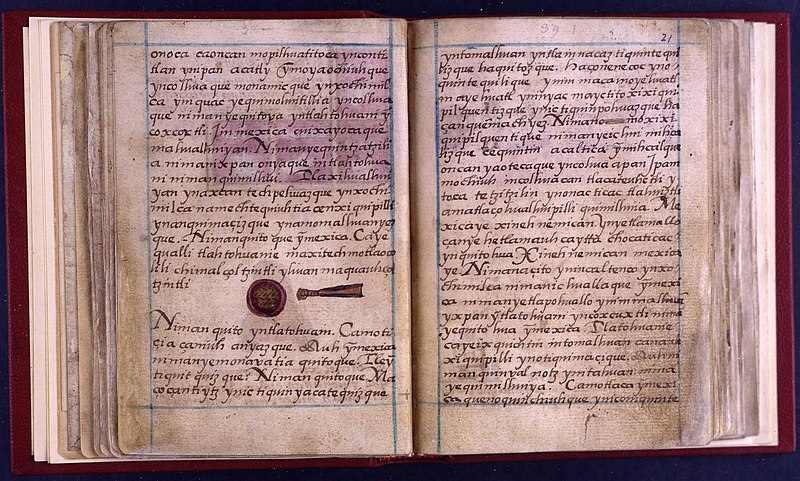 onoca caoncan mopilhuatitoca yn conti
tlan ynipan acatly ỹmoyaochiuhque
yncolhua que monamic que ynxochimil
ca yniquac yequimolhuitillia yncolhua
que niman yequitoya yntlahtohuani ỹ
coxcoxtli. In mexica cuixayocaque
ma hualhuiyan. Nimanyequintzatzili
a niman ixpan onyaque intlahtohua
ni niman quimilhui. Tlaxihualhui
yan ynaxcan techpehuazque ynxochi
milca namechtequiuhtia cenxiquipilli
ynanquimacizque ynamomalhuanyez
que. Niman quito que ỹmexica. Caye
qualli tlahtohuanie maxitechmotlaoco
lili chimalçoltzintli yhuan maquauhçol
tzintli
Niman quito yntlatohuani. Camoti
çia camiuh anyazque. Auh ỹmexica
niman yemononotza quitoque. Tleỹ
tiquitquizque? Niman quitoque. Ma
çocantiytz ynic tiquinyacatequizque
21
yntomalhuan yntla innacaz tiquintequi
lizque
quinte quilique ynin
in oyehuatl yninyac mayectito xixiqui
pilquentizque ynic tiquinpohuazque ha
çan quemachyez. Niman xixi
quipilquentique nimanyeichui mihica
tizque acaltica ỹmihcalque
oncan yaotecaque yncolhuacapan Ipan
mochiuh incolhuacan tlacatecuhtli y
toca tetzitzilin ynonacticac tlahuiztli
amatlaço huallinpilli quimilhuia. Me
xicaye xinechnemican ynyetlamallo
canye hetlamauh cayttå chocaticac
yn quitohua. Xinechnemican mexica
ye. Niman acito yn incaltenco ynxo
chimilca manic huallaque ỹmexi
ca nimanyetlapohuallo ynmimalhua
yxpan ỹtlatohuani yncoxcuxtli nima
yequitohua ỹmexica. Tlatohuanie
caye ixquichtin intomalhuan canaui
xiquipilli ynotiquimaçique. Auh ni
man quinyhualnotz yntahuan nima
yequimilhuiya. Camotlaca ỹmexi
ca quenoquinchiuhque ynicomquinte